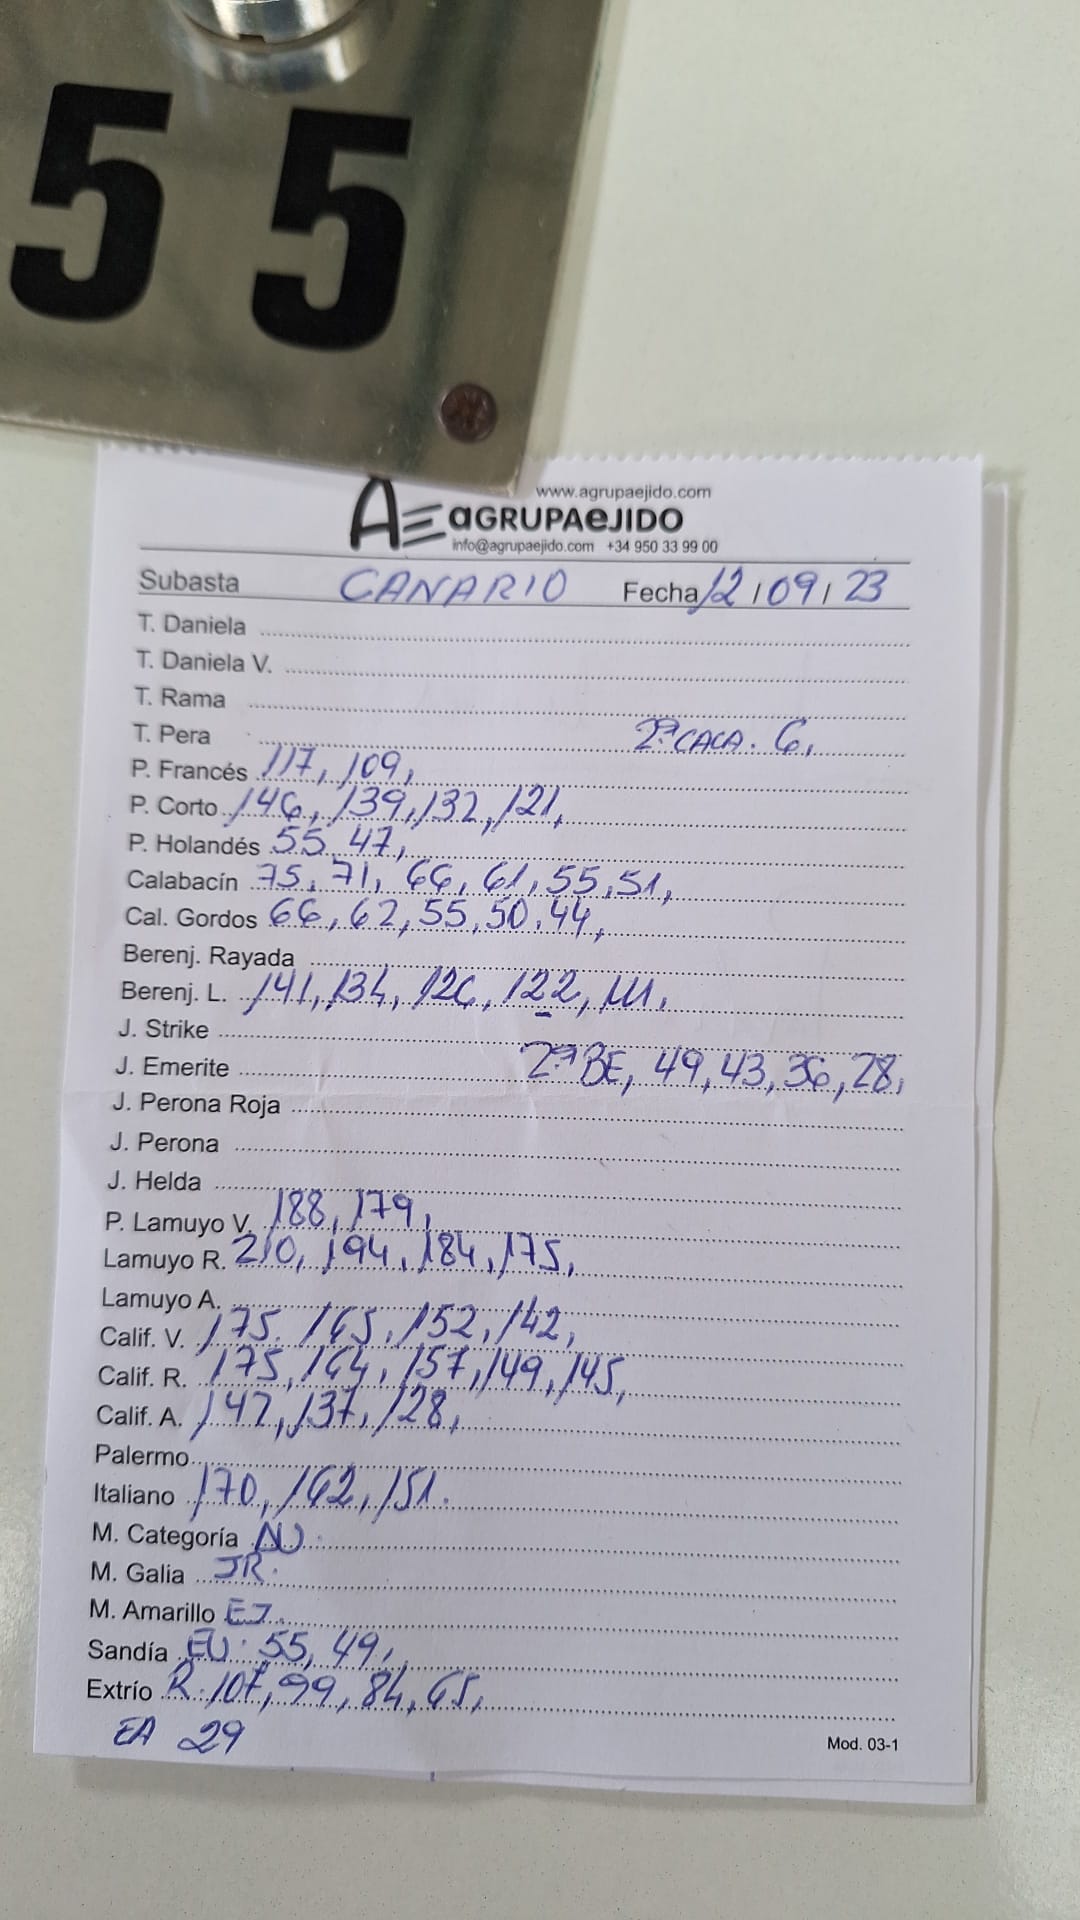 55
www.agrupaejido.com
AE aGRUPAeJIDO
info@agrupaejido.com +34 950 33 99 00
Subasta CANARIO Fecha 12/09/23
T. Daniela
T. Daniela V.
T. Rama
T. Pera 2ª CACA. 6,
P. Francés 117, 109,
P. Corto 146, 139, 132, 121,
P. Holandés 55 47,
Calabacín 75, 71, 66, 61, 55, 51,
Cal. Gordos 66, 62, 55, 50, 44,
Berenj. Rayada
Berenj. L. 141, 134, 126, 122, 111,
J. Strike
J. Emerite 2ª BE, 49, 43, 36, 28,
J. Perona Roja
J. Perona
J. Helda
P. Lamuyo V. 188, 179,
Lamuyo R. 210, 194, 184, 175,
Lamuyo A.
Calif. V. 175, 165, 152, 142,
Calif. R. 175, 164, 157, 149, 145,
Calif. A. 147, 137, 128,
Palermo
Italiano 170, 162, 151.
M. Categoría
M. Galia JR.
M. Amarillo
Sandía EU: 55, 49,
Extrío R. 107, 99, 84, 65,
EA 29
Mod. 03-1